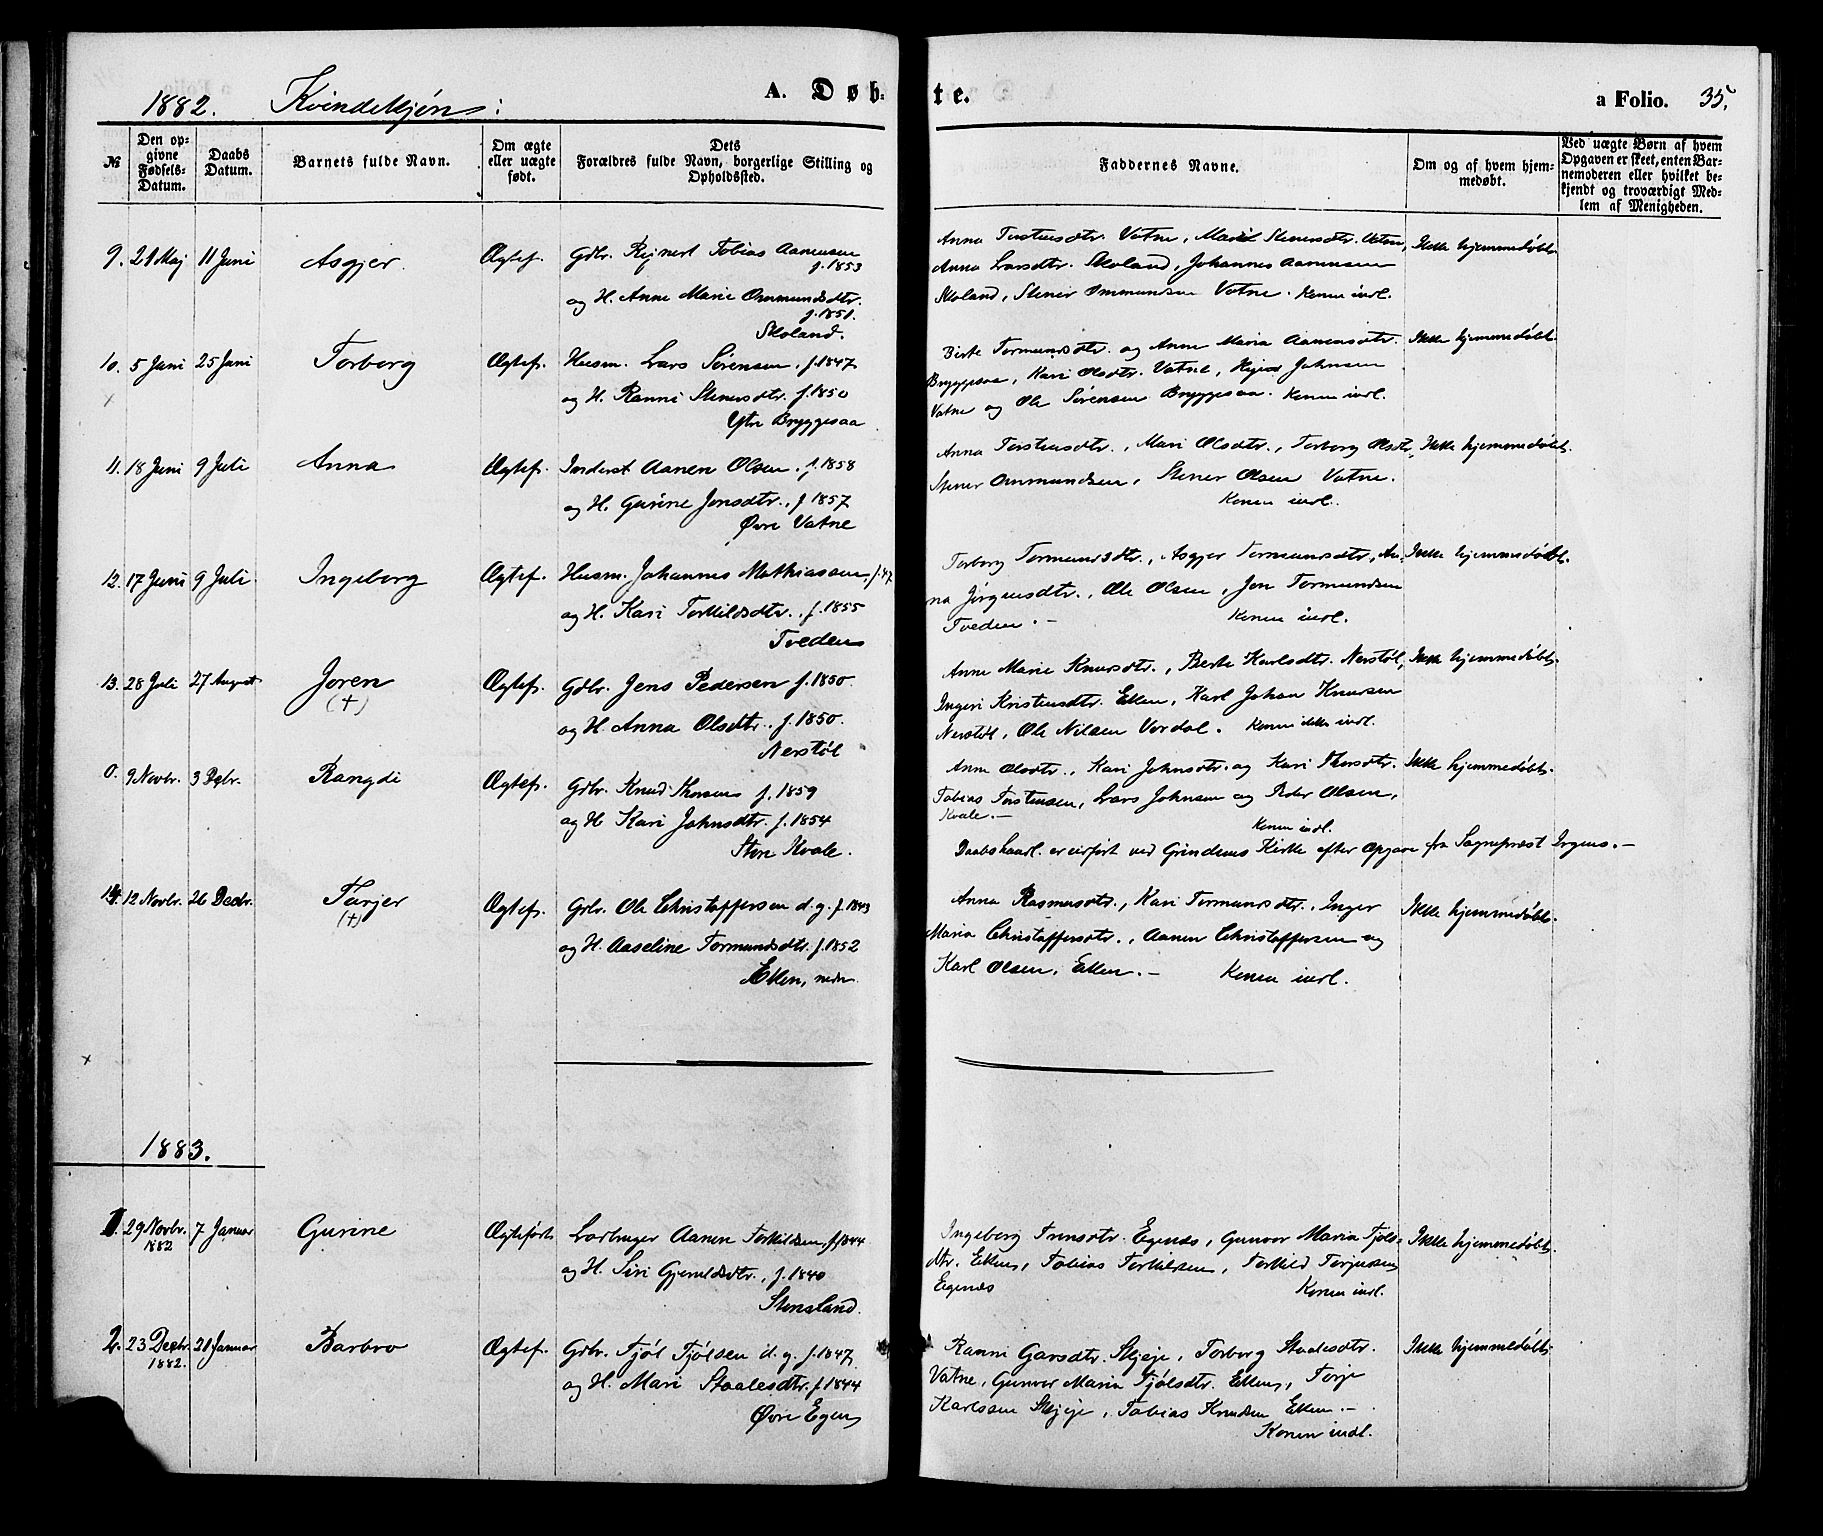 1882. Kvindekjøn: A. Døbte. a Folio. 35.
№ Den opgivne Fødsels-Datum. Daabs Datum. Barnets fulde Navn. Om ægte eller uægte født. Dets Forældres fulde Navn, borgerlige Stilling og Opholdssted. Faddernes Navne. Om og af hvem hjemmedøbt. Ved uægte Børn af hvem Opgaven er skeet, enten Barnemoderen eller hvilket bekjendt og troværdigt Medlem af Menigheden.
9. 21 Maj 11 Juni Asgjer. Ægtef. Gdbr. Rejnert Tobias Aanensen
f. 1853
og H. Anne Marie Ommundsdtr.
f. 1851.
Skoland.
Anna Torstensdtr. Vatne, Stenersdtr. Vatne,
Anna Larsdtr. Skoland, Johannes Aanensen
Skoland, Stener Ommundsen Vatne. Konen indl.
Ikke hjemmedøbt.
10. 5 Juni 25 Juni Torborg Ægtef. Husm. Lars Sørensen, f. 1847
og H. Ranni Stenersdtr. f. 1850
Ytre Bryggesaa
Birte Tormundsdtr. og Anne Maria Aanensdtr.
Bryggesaa, Kari Olsdtr. Vatne, Johnsen
Vatne og Ole Sørensen Bryggesaa. Konen indl.
Ikke hjemmedøbt.
11. 18 Juni 9 Juli Anna Ægtef. Inderst Aanen Olsen. f. 1858
og H. Gurine Jonsdtr., f 1857
Øvre Vatne
Anna Torstensdtr., Mari Olsdtr., Torborg Olsdtr,
Stener Ommundsen, Stener Olsen Vatne.
Konen indl.
Ikke hjemmedøbt.
12. 17 Juni 9 Juli. Ingeborg Ægtef. Husm. Johannes Mathiassen, f. 47
og H. Kari Torkildsdtr., f. 1855
Tveden
Torborg Tormundsdtr., Asgjer Tormundsdtr., An-
na Jørgensdtr., Ole Olsen, Jon Tormundsen
Tveden. - Konen indl.
Ikke hjemmedøbt.
13. 28 Juli 27 August Joren Ægtef. Gdbr. Jens Pedersen f. 1850.
(+)
og H. Anna Olsdtr., f. 1850.
Nerstøl
Anne Marie Knudsdtr., Berte Karlsdtr. Nerstøl,
Ingeri Kristensdtr. Eken, Karl Johan Knudsen
Nerstøl, Ole Nilsen Verdal. Konen ikke indl.
Ikke hjemmedøbt.
0. 9 Novbr. 3 Debr. Rangdi Ægtef. Gdbr. Knud Thorsen f. 1859
og H Kari Johnsdtr. f. 1854
Store Kvale.
Anne Olsdtr., Kari Johnsdtr. og Kari Thorsdtr.
Tobias Torstensen, Lars Johnsen og Peder Olsen,
Kvale. -
Konen indl.
Ikke hjemmedøbt.
Daabshandl. er udført ved Grindens Kirke efter Opgave fra Sognepræst Irgens. -
14. 12 Novbr. 26 Decbr. Tarjer Ægtef. Gdbr. Ole Christoffersen d.y. f. 1843
(+)
og H. Aaseline Tormundsdtr. f. 1852
Eken, nedre
Anna Rasmusdtr., Kari Tormundsdtr., Inger
Maria Christoffersdtr., Aanen Christoffersen og
Karl Olsen, Eken. - Konen indl.
Ikke hjemmedøbt.
1883.
1. 29 Novbr. 7 Januar Gurine Ægtefødt Aanen Torkildsen, f. 1844
1882
og H. Siri Gjeruldsdtr., f. 1840
Stensland.
Ingeborg Egenes, Gunvor Maria Tjøls-
dtr. Eken, Tobias Torkildsen, Torkild Terjesen
Egenes Konen indl.
Ikke hjemmedøbt.
2. 23 Decbr. 21 Januar Barbro Ægtef. Gdbr. Tjøl Tjølsen d. y. f. 1847
1882.
og H. Mari Staalesdtr. f. 1844
Øvre Egen
Ranni Garsdtr. Skjeje, Torborg Staalesdtr.
Vatne, Gunver Maria Tjølsdtr. Eken, Terje
Karlssen Skjeje, Tobias Knudsen Eken. -
Konen indl.
Ikke hjemmedøbt.